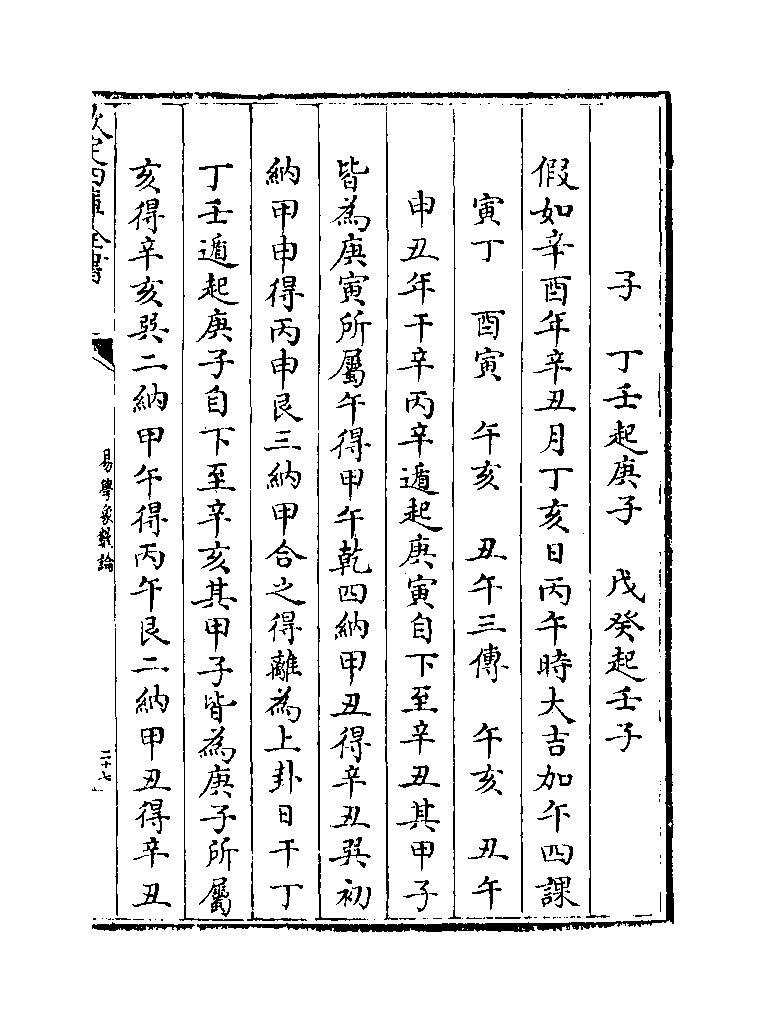 子　丁壬起庚子　戊癸起壬子
假如辛酉年辛丑月丁亥日丙午時大吉加午四課
寅丁　酉寅　午亥　丑午三傳　午亥　丑午
申丑年干辛丙辛遁起庚寅自下至辛丑其甲子
皆為庚寅所屬午得甲午乾四納甲丑得辛丑巽初
納甲申得丙申艮三納甲合之得離為上卦日干丁
丁壬遁起庚子自下至辛亥其甲子皆為庚子所屬
亥得辛亥巽二納甲午得丙午艮二納甲丑得辛丑
欽定四庫全書
易學象數論
二十七